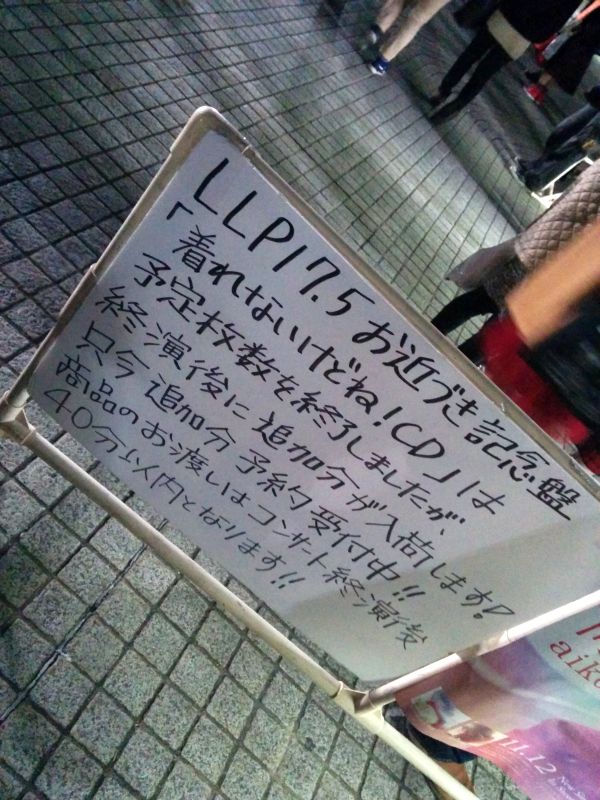 LLP17.5 お近づき記念盤
「着れないけどね!CD」は
予定枚数を終了しましたが、
終演後に追加分が入荷します!
只今追加分予約受付中!!
商品のお渡しはコンサート終演後
40分以内となります!!
aiko
11.12